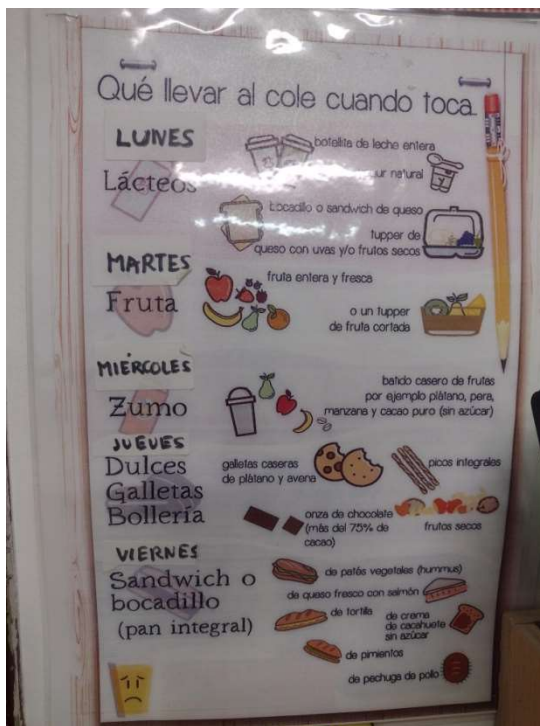 Qué llevar al cole cuando toca.
LUNES
Lácteos
botellita de leche entera
natural
bocadillo o sandwich de queso
tupper de
queso con uvas y/o frutos secos
MARTES
Fruta
fruta entera y fresca
o un tupper
de fruta cortada
MIÉRCOLES
Zumo
batido casero de frutas
por ejemplo plátano, pera,
manzana y cacao puro (sin azúcar)
JUEVES
Dulces
Galletas
Bollería
galletas caseras
de plátano y avena
picos integrales
onza de chocolate
(más del 75% de
cacao)
frutos secos
VIERNES
Sandwich o
bocadillo
(pan integral)
de patés vegetales (hummus)
de queso fresco con salmón
de tortilla
de crema
de cacahuete
sin azúcar
de pimientos
de pechuga de pollo